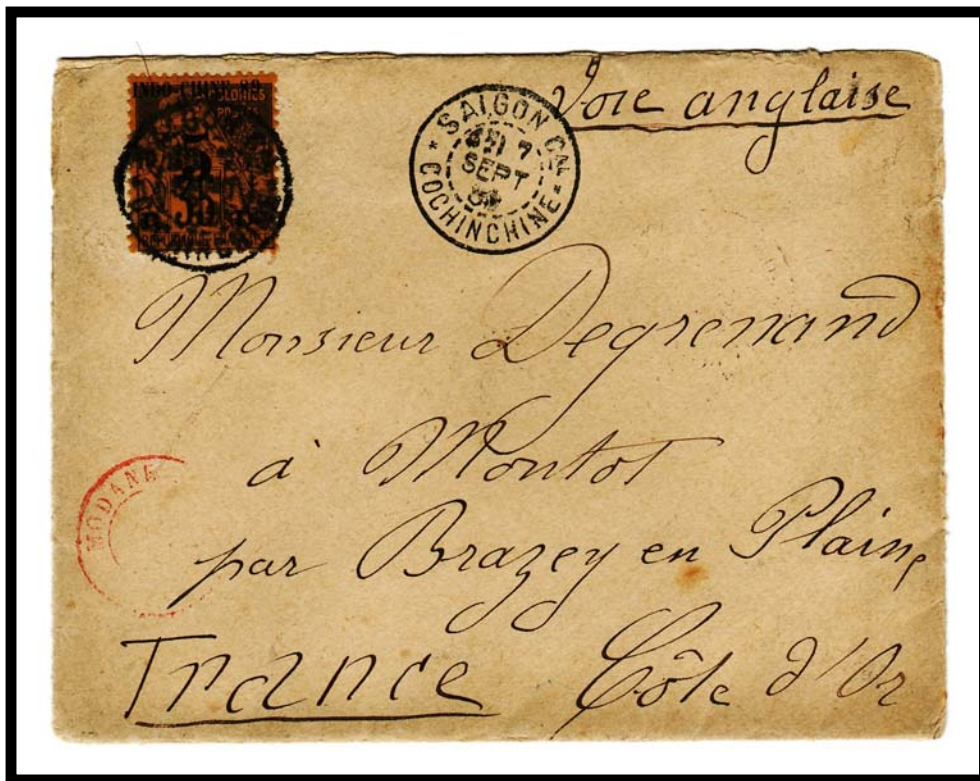 INDO-CHINE 89
COLONIES
5
SAIGON CAL
7
SEPT
COCHINCHINE
Voie anglaise
Monsieur Degrenand
à Montot
par Brazey en Plaine
France Côte d'Or
MODANE